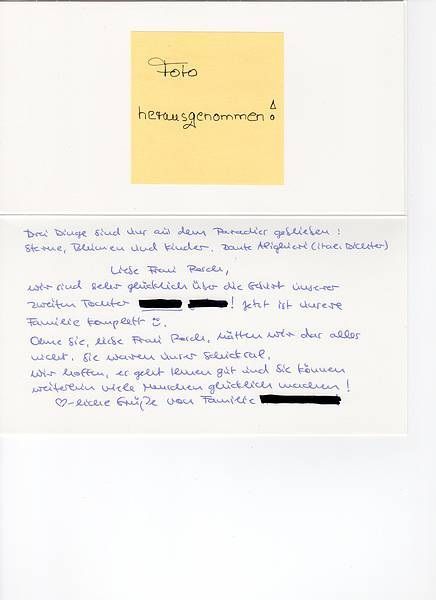 Foto
herausgenommen!
Drei Dinge sind uns aus dem Paradies geblieben:
Sterne, Blumen und Kinder. Dante Alighieri (ital. Dichter)
Liebe Frau Resch,
wir sind sehr glücklich über die Geburt unserer
zweiten Tochter ! Jetzt ist unsere
Familie komplett ☺.
Ohne Sie, liebe Frau Resch, hätten wir das alles
nicht. Sie waren unser Schicksal.
Wir hoffen, es geht Ihnen gut und Sie können
weiterhin viele Menschen glücklich machen!
♡-liche Grüße von Familie